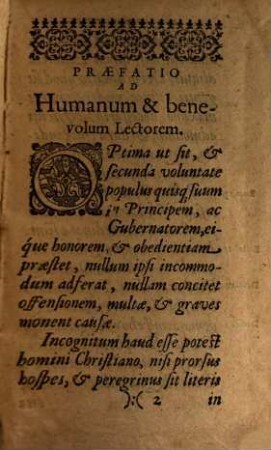 PRÆFATIO
AD
Humanum & bene-
volum Lectorem.
OPtima ut sit, &
secunda voluntate
populus quisq; suum
in Principem, ac
Gubernatorem, ei-
que honorem, & obedientiam
præstet, nullum ipsi incommo-
dum adferat, nullam concitet
offensionem, multæ, & graves
monent causæ.
Incognitum haud esse potest
homini Christiano, nisi prorsus
hospes, & peregrinus sit literis
):( 2 in